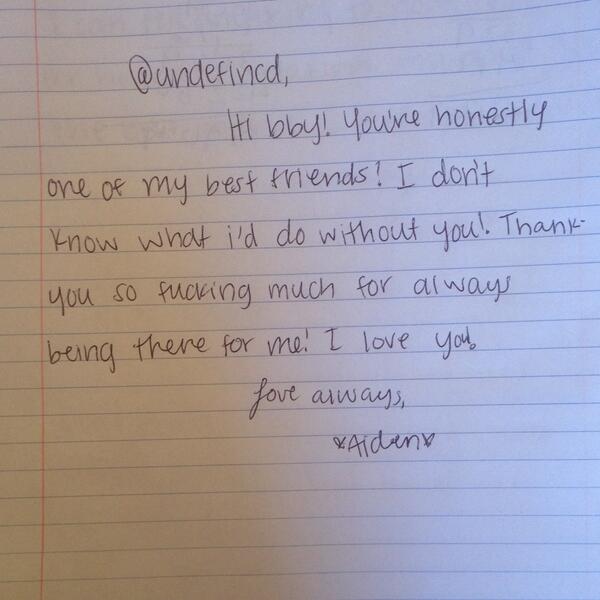 @undefincd,
Hi bby! You're honestly
one of my best friends! I don't
know what i'd do without you! Thank-
you so fucking much for always
being there for me! I love you.
Love always,
*Aiden*